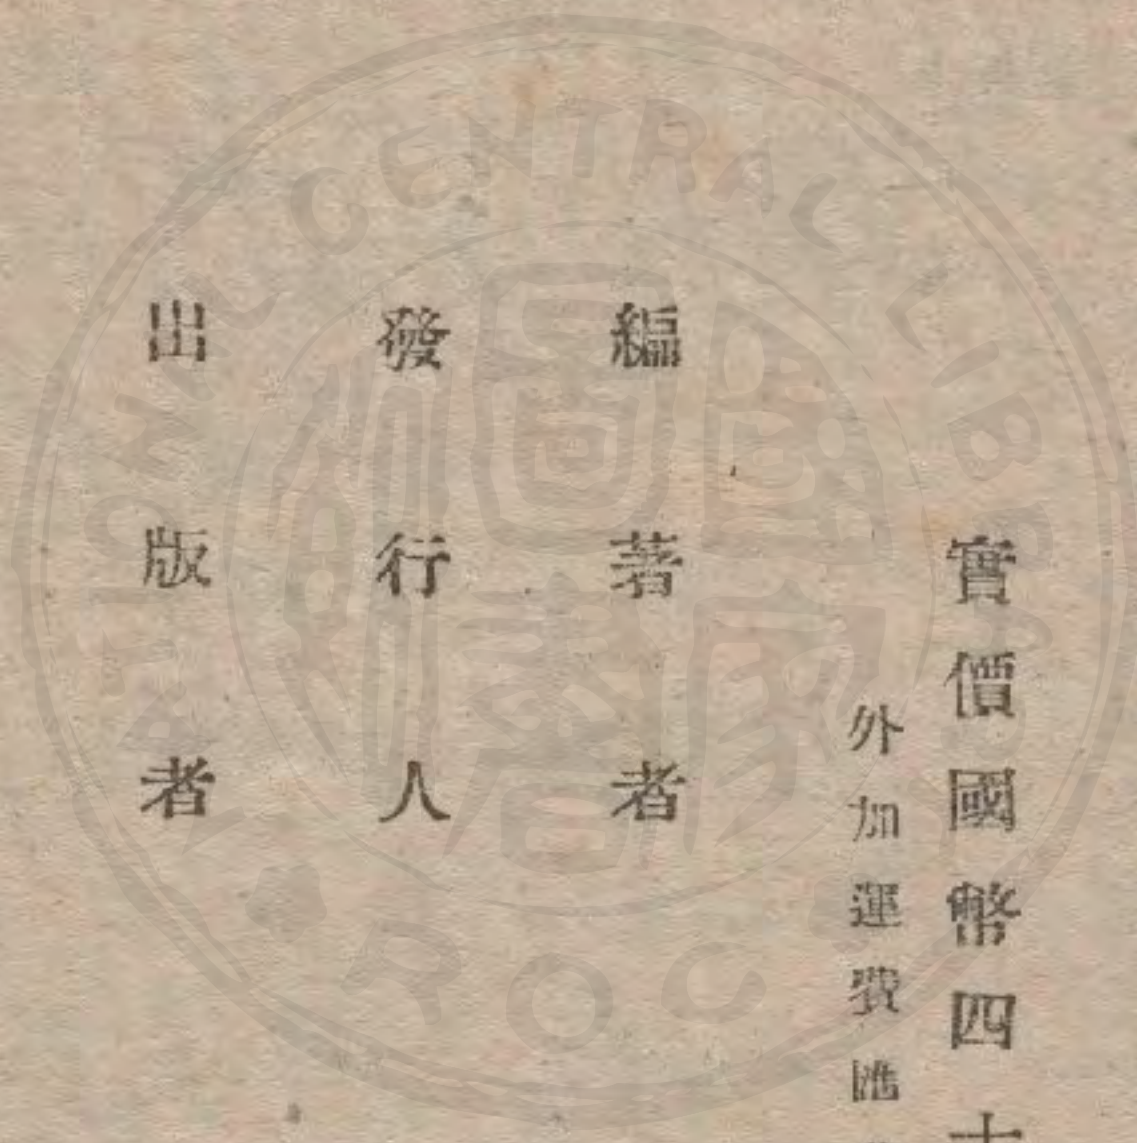 實價國幣四十
外加運費匯
編著者
發行人
出版者
NATIONAL CENTRAL LIBRARY
R.O.C.
國家圖書